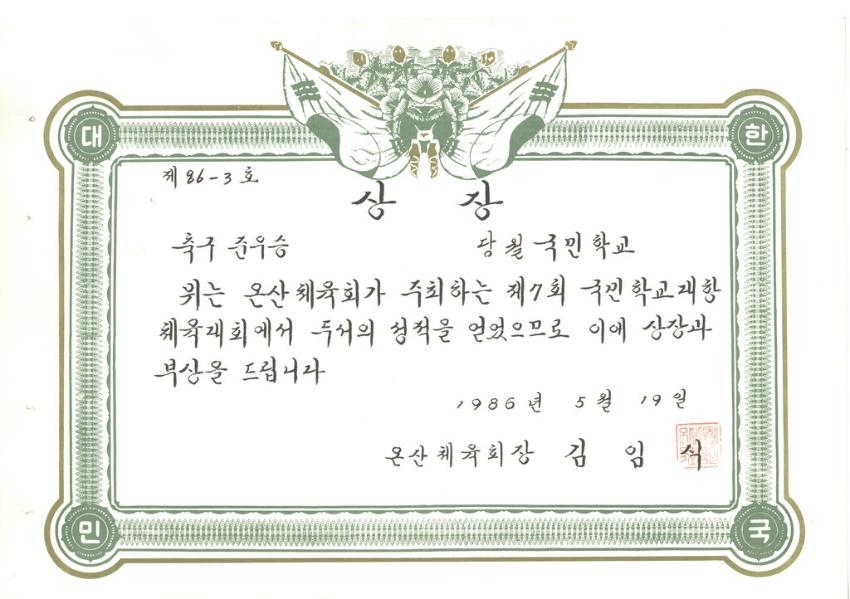 대 한
제 86-3 호
상 장
축구 준우승 당월국민학교
위는 온산체육회가 주최하는 제7회 국민학교대항
체육대회에서 두서의 성적을 얻었으므로 이에 상장과
부상을 드립니다
1986년 5월 19일
온산체육회장 김 임 식
민 국